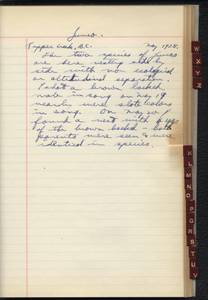 Junco.
B.C. May 1928.
The two species of Junco
are here nesting side by
side with no ecological
or altitudinal separation.
I shot a brown backed
male in song on May 19
nearby were slate colors
in song. On May 20 I
found a nest with eggs
of the brown backed - both
parents were seen & were
identical in species.
W
X
Y
Z
K
L
M
N
O
P
Q
R
S
T
U
V